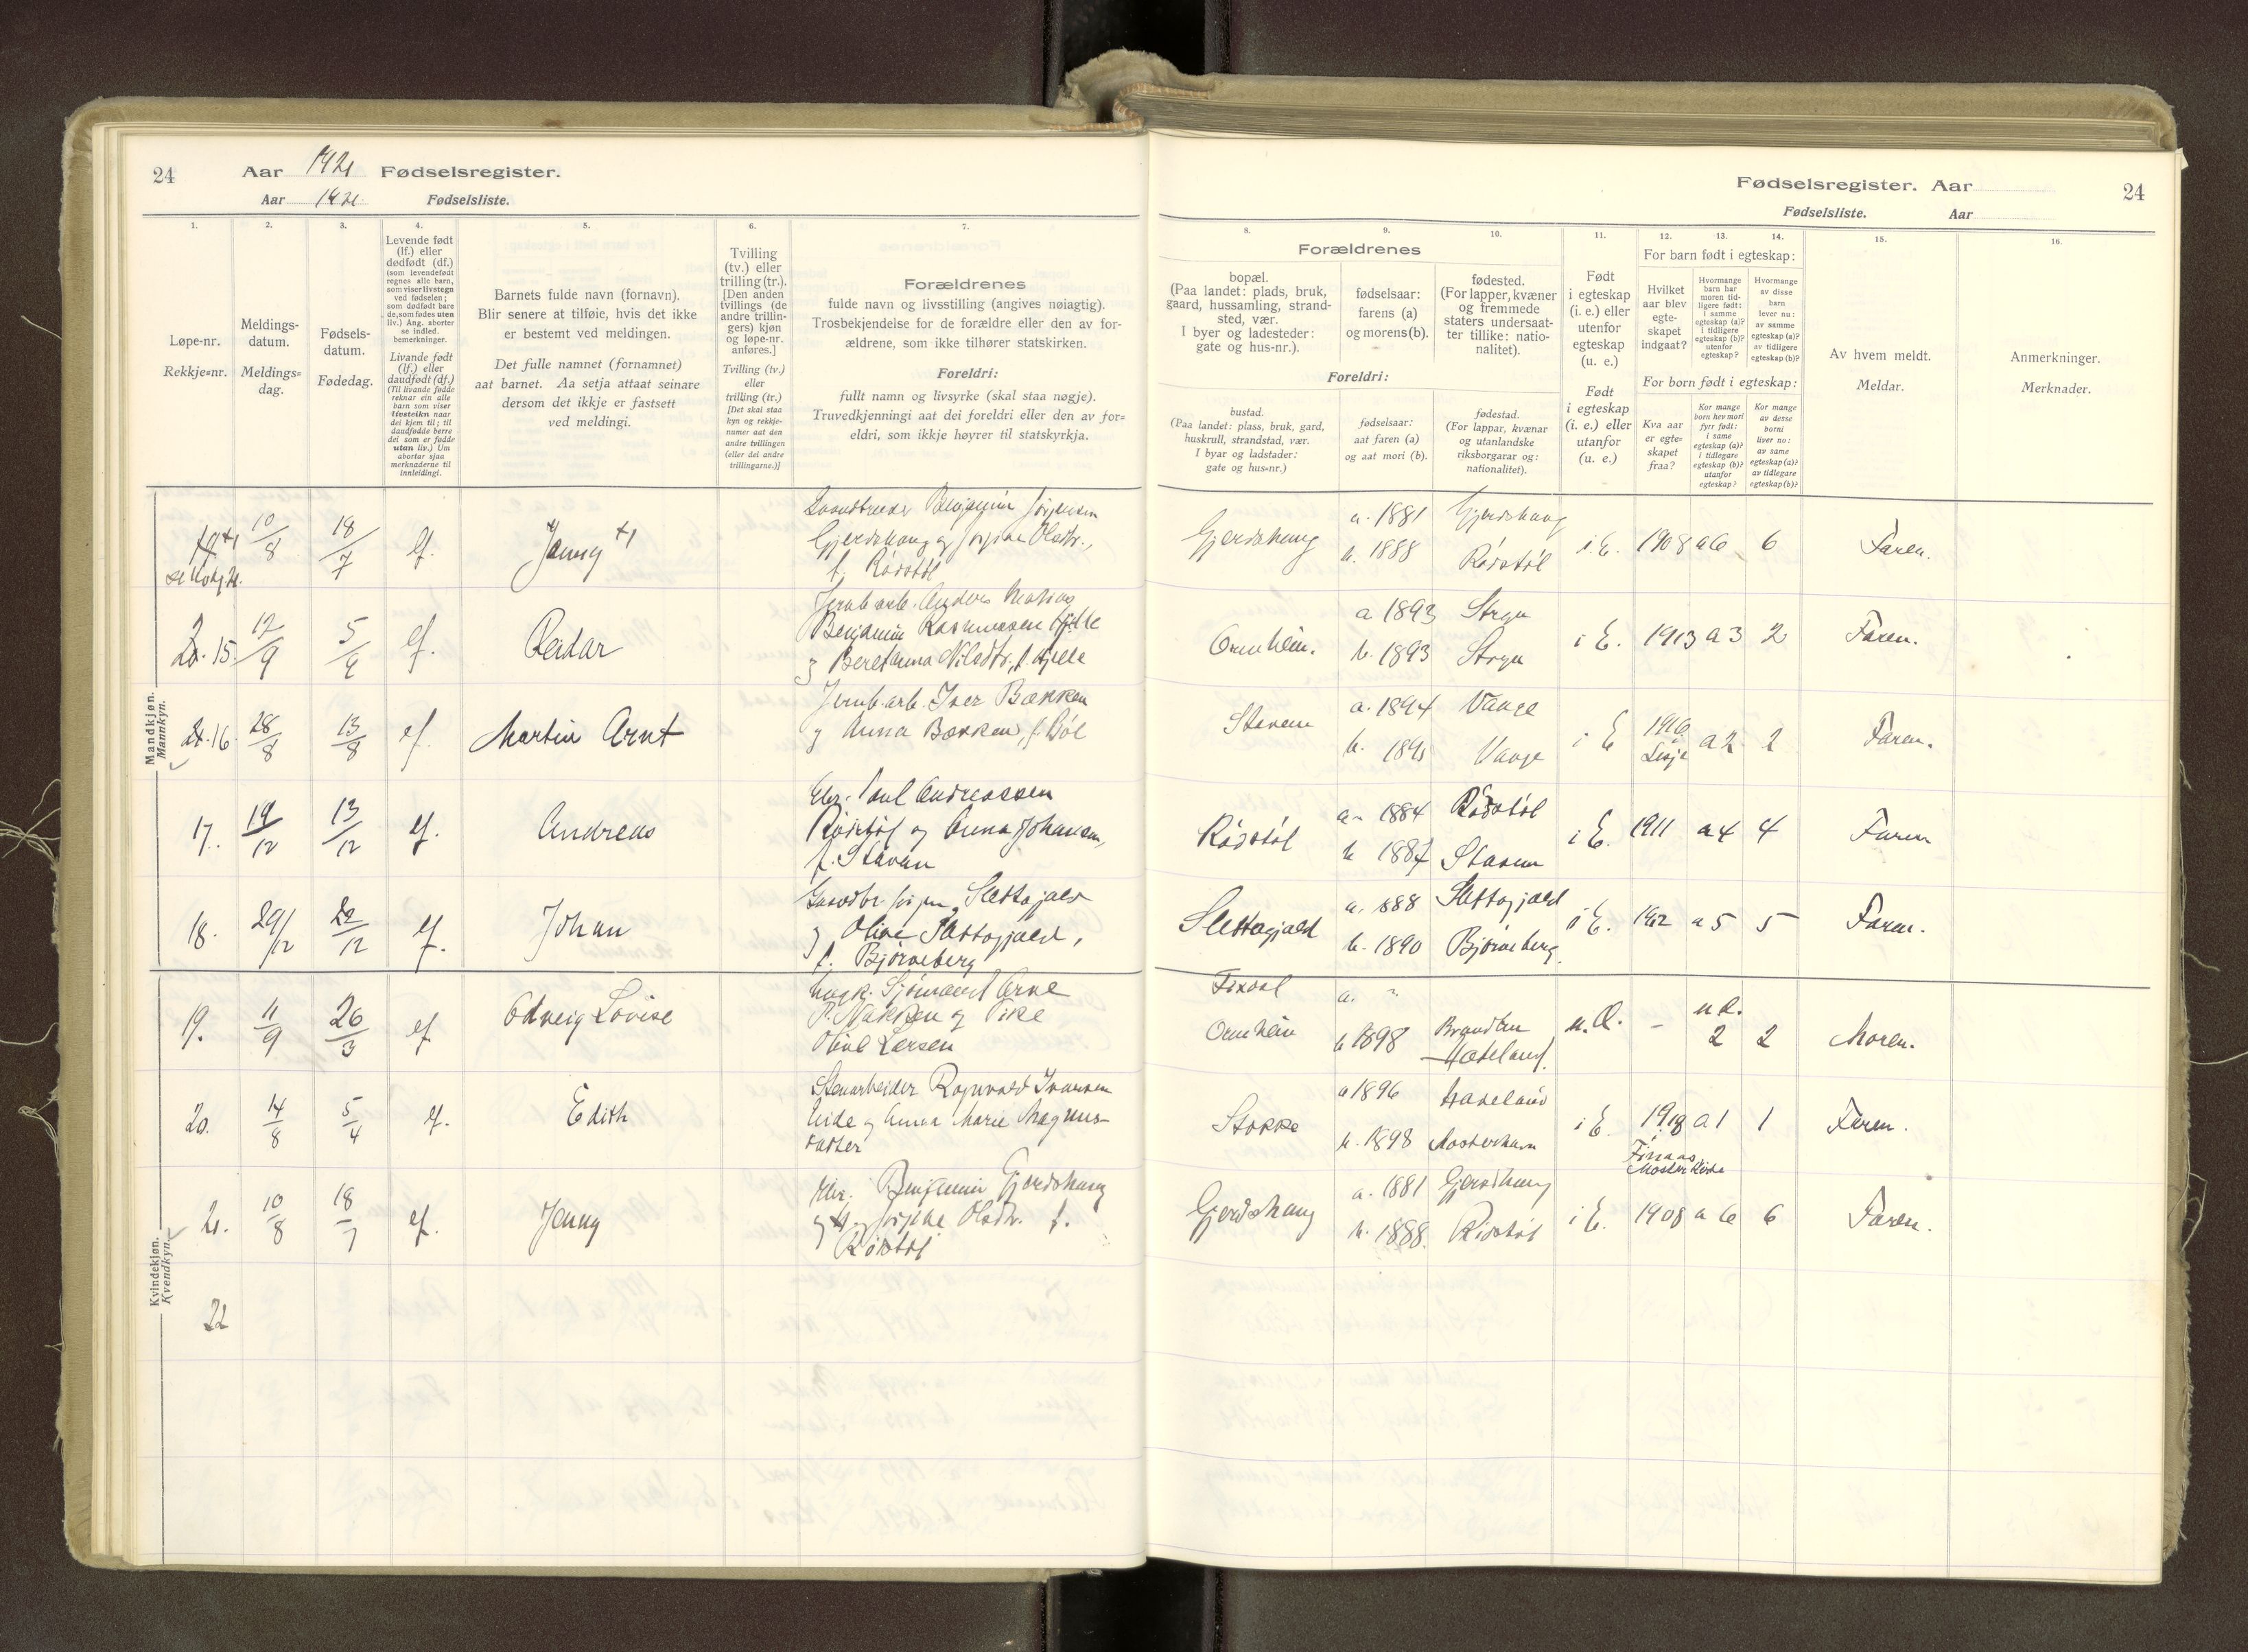 24
Aar 1921 Fødselsregister.
Aar 1921 Fødselsliste.
1.
2.
3.
4.
5.
6.
7.
Løpe-nr.
Rekkje=nr.
Meldings-
datum.
Meldings=
dag.
Fødsels-
datum.
Fødedag.
Levende født
(lf.) eller
dødfødt (df.)
(som levendefødt
regnes alle barn,
som viser livstegn
ved fødselen;
som dødfødt bare
de, som fødes uten
liv.) Ang. aborter
se indled.
bemerkninger.
Livande født
(lf.) eller
daudfødt (df.)
(Til livande fødde
reknar ein alle
barn som viser
livsteikn naar
dei kjem til; til
daudfødde berre
dei som er fødde
utan liv.) Um
abortar sjaa
merknaderne til
innleidingi.
Barnets fulde navn (fornavn).
Blir senere at tilføie, hvis det ikke
er bestemt ved meldingen.
Det fulle namnet (fornamnet)
aat barnet. Aa setja attaat seinare
dersom det ikkje er fastsett
ved meldingi.
Tvilling
(tv.) eller
trilling (tr.).
[Den anden
tvillings (de
andre trillin-
gers) kjøn
og løpe-nr.
anføres.]
Tvilling (tv.)
eller
trilling (tr.)
[Det skal staa
kyn og rekkje-
numer aat den
andre tvillingen
(eller dei andre
trillingarne.)]
Forældrenes
fulde navn og livsstilling (angives nøiagtig).
Trosbekjendelse for de forældre eller den av for-
ældrene, som ikke tilhører statskirken.
Foreldri:
fullt namn og livsyrke (skal staa nøgje).
Truvedkjenningi aat dei foreldri eller den av for=
eldri, som ikkje høyrer til statskyrkja.
Mandkjøn.
Mannkyn.
10/8
18/7
lf.
Jenny +1
Gaardbruker Benjamin Jørgensen
Gjerdshaug og Jørgine Olsdtr.,
f. Rødstøl
15.
12/9
5/9
lf.
Reidar
Jernb.arb. Anders Matias
Benjamin Rasmussen Hjelle
og Beret Anna Nilsdtr. f. Hjelle
16
28/8
13/8
lf.
Martin Arnt
Jernb.arb. Iver Bækken
og Anna Bækken, f. Bøe
17.
19/12
13/12
lf.
Andreas
Gbr. Paul Andreassen
Rødstøl og Anna Johansen,
f. Staven
18.
29/12
22/12
lf.
Johan
Gaardbr. Jørgen Slettagjæld
og Oline Slettagjæld,
f. Bjørneberg
Kvindekjøn.
Kvendkyn.
19.
11/9
26/3
lf
Edveig Lovise
Ungk. Sjømand Arne
P. Nakken og Pike
Oline Larsen
20.
14/8
5/4
lf.
Edith
Stenarbeider Ragnvald Ivarsen
Eide og Anna Marie Magnus-
datter
21.
10/8
18/7
lf.
Jenny
Gbr. Benjamin Gjerdshaug
og Jørgine Olsdtr. f.
Rødstøl
22
Fødselsregister. Aar
24
Fødselsliste. Aar
8.
9.
10.
11.
12.
13.
14.
15.
16.
Forældrenes
bopæl.
(Paa landet: plads, bruk,
gaard, hussamling, strand-
sted, vær.
I byer og ladesteder:
gate og hus-nr.).
fødselsaar:
farens (a)
og morens (b).
fødested.
(For lapper, kvæner
og fremmede
staters undersaat-
ter tillike: natio-
nalitet).
Foreldri:
bustad.
(Paa landet: plass, bruk, gard,
huskrull, strandstad, vær.
I byar og ladstader:
gate og hus=nr.)
fødselsaar:
aat faren (a)
og aat mori (b).
fødestad.
(For lappar, kvænar
og utanlandske
riksborgarar og:
nationalitet).
Født
i egteskap
(i. e.) eller
utenfor
egteskap
(u. e.)
Født
i egteskap
(i. e.) eller
utanfor
(u. e.)
For barn født i egteskap:
Hvilket
aar blev
egte-
skapet
indgaat?
Hvormange
barn har
moren tid-
ligere født:
i samme
egteskap (a)?
i tidligere
egteskap (b)?
utenfor
egteskap?
Hvormange
av disse
barn
lever nu:
av samme
egteskap (a)?
av tidligere
egteskap (b)?
For born født i egteskap:
Kva aar
er egte=
skapet
fraa?
Kor mange
born hev mori
fyrr født:
i same
egteskap (a)?
i tidlegare
egteskap (b)?
utanfor
egteskap?
Kor mange
av desse
borni
liver no:
av same
egteskap (a)?
av tidlegare
egteskap (b)?
Av hvem meldt.
Meldar.
Anmerkninger.
Merknader.
Gjerdshaug
a. 1881
b. 1888
Gjerdshaug
Rødstøl
i E.
1908
a 6
6
Faren.
Ormheim.
a 1893
b. 1893
Stryn
Stryn
i E.
1913
a 3
2
Faren.
Stavem
a. 1894
b. 1891
Vaage
Vaage
i E
1916
Lesje
a 2
2
Faren.
Rødstøl
a. 1884
b 1887
Rødstøl
Stavem
i E.
1911
a 4
4
Faren
Slettagjæld
a. 1888
b. 1890
Slettagjæld
Bjørneberg.
i E.
1912
a 5
5
Faren.
Ormheim
a. "
b 1898
Brandbu
Hadeland.
u. E.
–
u E.
2
2
Moren.
Stokke
a 1896
b. 1898
Mosterhavn
i E.
1918
i
Finaas,
Moster Kirke
a 1
1
Faren.
Gjerdshaug
a. 1881
b. 1888.
Gjerdshaug
Rødstøl
i E.
1908
a 6
6
Faren.